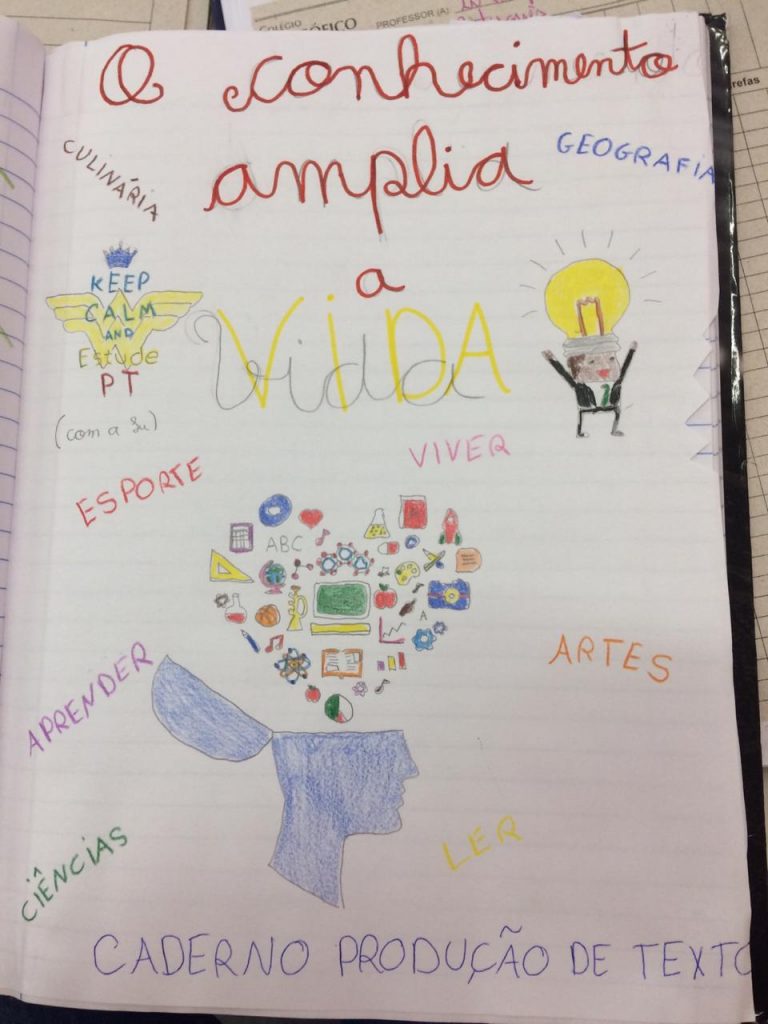 COLÉGIO
PROFESSOR (A)
refas
O conhecimento
amplia
a
VIDA
Vida
CULINÁRIA
GEOGRAFIA
KEEP
CALM
AND
Estude
PT
(com a Su)
VIVER
ESPORTE
ABC
A
APRENDER
ARTES
CIÊNCIAS
LER
CADERNO PRODUÇÃO DE TEXTO